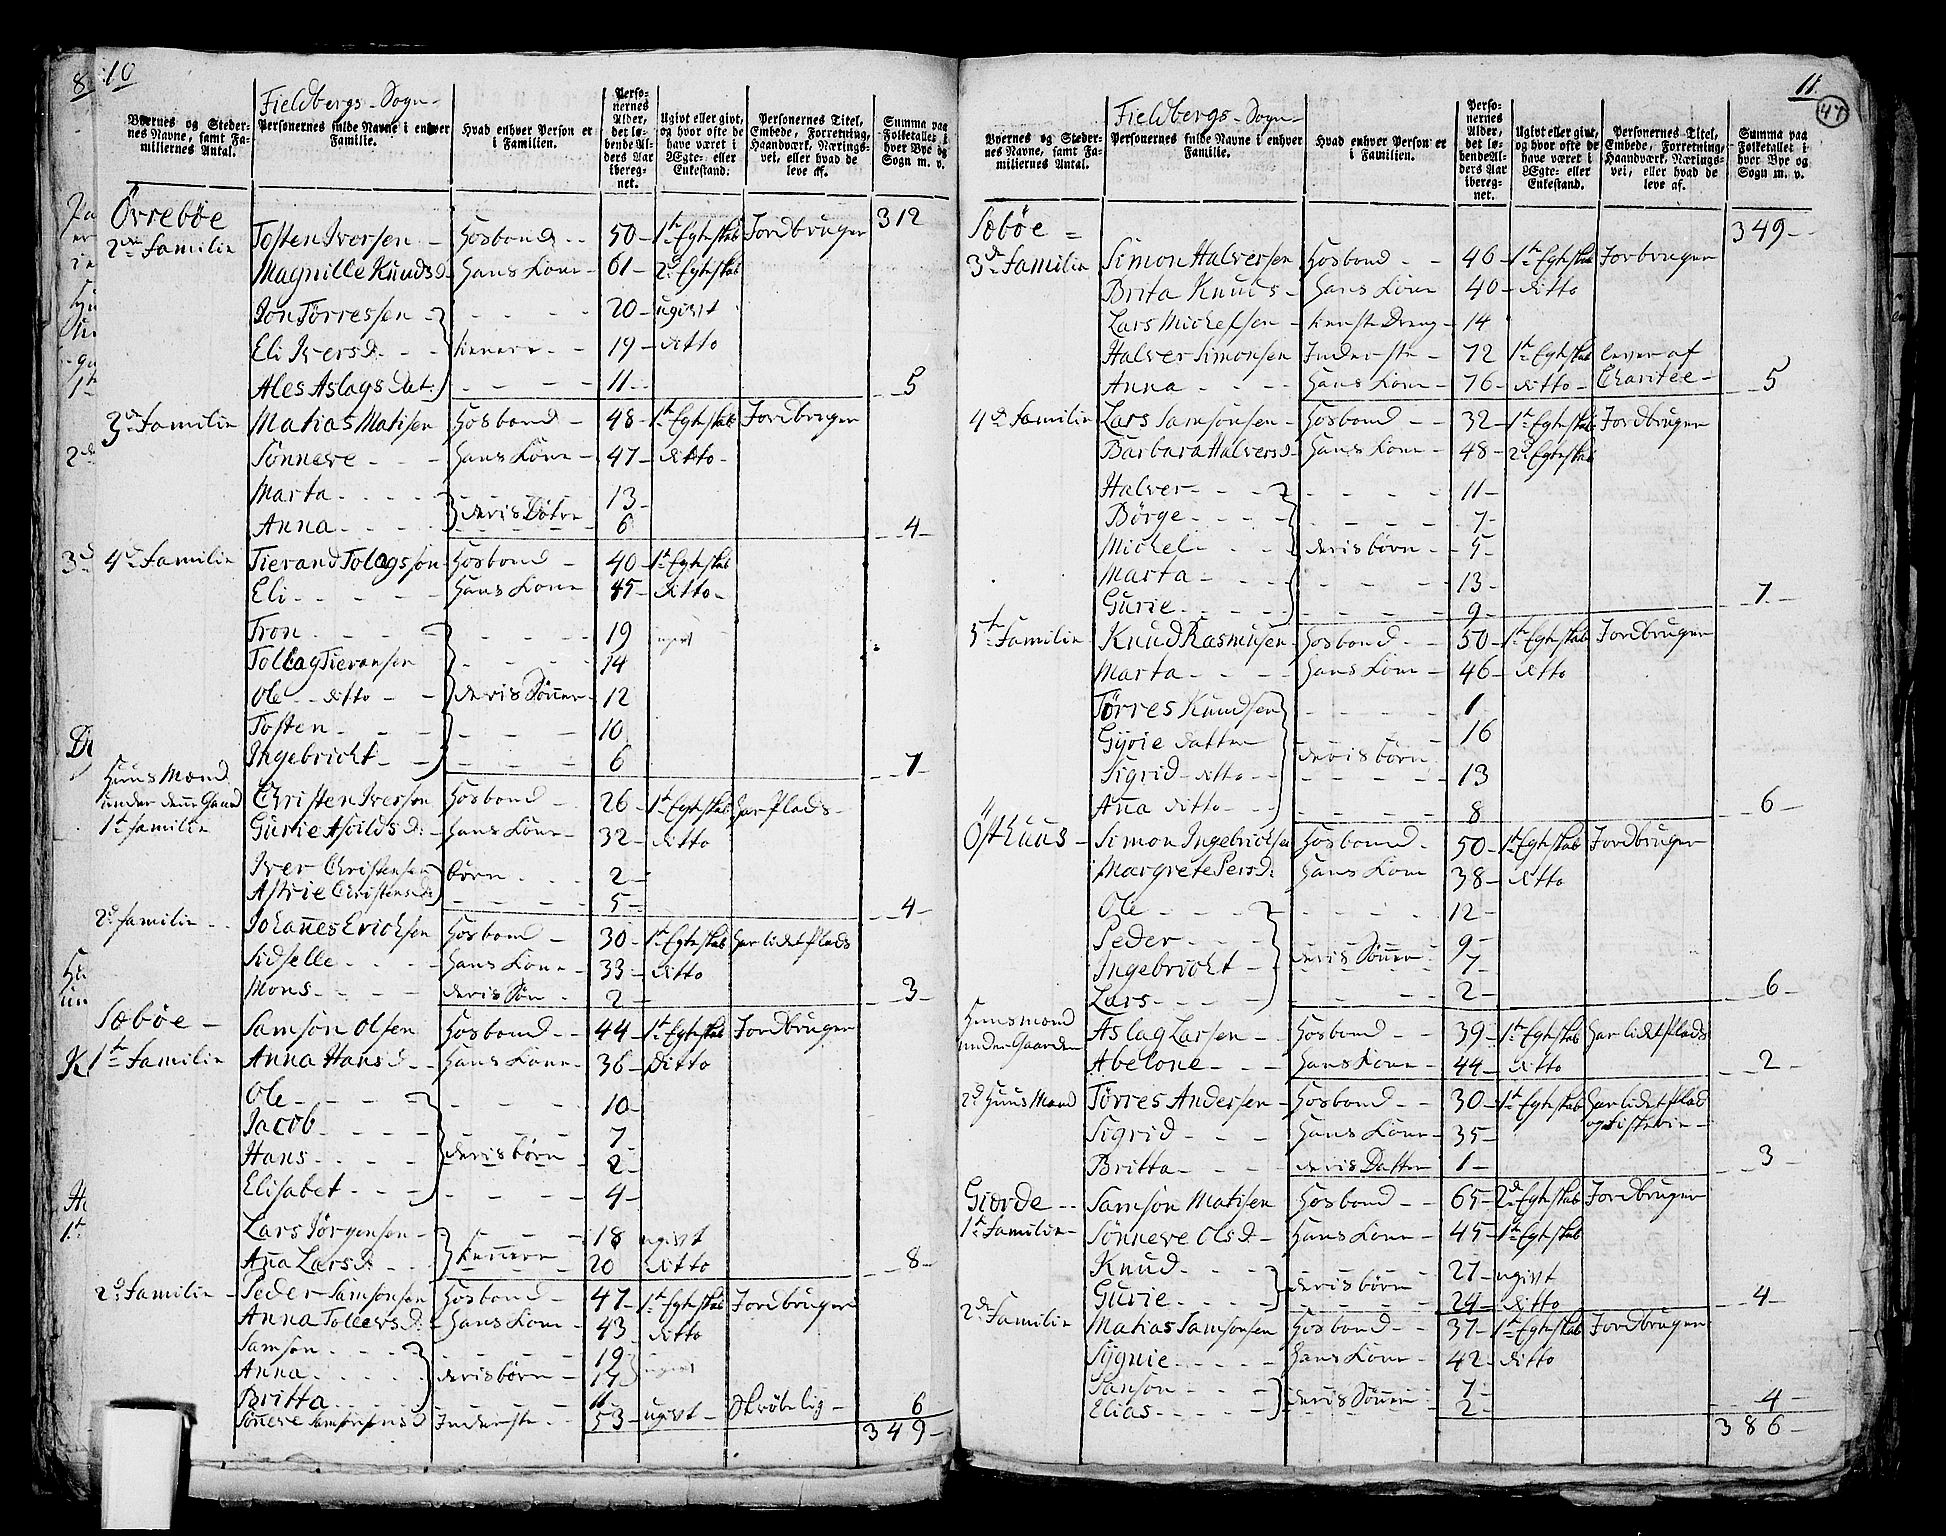 10
Fieldbergs Sogn
Byernes og Stedernes Navne, samt Familiernes Antal.
Personernes fulde Navne i enhver Familie.
Hvad enhver Person er i Familien.
Personernes Alder, det løbende Alders Aar iberegnet.
Ugivt eller givt, og hvor ofte de have været i Ægte- eller Enkestand.
Personernes Titel, Embede, Forretning, Haandværk, Næringsvei, eller hvad de leve af.
Summa paa Folketallet i hver Bye og Sogn m. v.
Örrebøe 312
2de Familie Tosten Iversen Hosbond 50 1te Egteskab Jordbruger
Magnille Knudsd. Hans Kone 61 2d Egteskab
Jon Törressen 20 ugivt
Eli Iversd. tienere 19 ditto
Ales Aslags Dat: 11 5
3de Familie Matias Matisen Hosbond 48 1te Egteskab Jordbruger
Sönneve Hans Kone 47 ditto
Marta 13
Anna deris Døtre 6 4
4de Familie Tierand Tolagsson Hosbond 40 1te Egteskab
Eli Hans Kone 45 ditto
Tron 19 ugivt
Tollag Tieransen 14
Ole ditto deris Sønner 12
Tosten 10
Ingebricht 6 7
Huus Mænd
under denne Gaard Christen Iversson Hosbond 26 1te Egteskab Har Plads
1te familie Gurie Asvilds d: Hans Kone 32 ditto
Iver Christensen børn 2
Astrie Christensd: 5 4
2d familie Johañes Erichsen Hosbond 30 1te Egteskab Har lidet Plads
Sidselle Hans Kone 33 ditto
Mons deris Søn 2 3
Sæbøe Samson Olsen Hosbond 44 1te Egteskab Jordbruger
1te Familie Anna Hans d. Hans Kone 36 Ditto
Ole 10
Jacob 7
Hans deris børn 2
Elisabet 4
Lars Jörgensen 18 ugivt
Aña Lars d: tienere 20 ditto 8
2d Familie Peder Samsonsen Hosbond 47 1te Egteskab Jordbruger
Anna Tollevs d: Hans Kone 43 ditto
Samson 19 ugivt
Anna deris børn 17
Britta 11
Söneve Samsonsd Inderste 53 ugivt Skrøbelig 6
349
11
47
Fieldbergs Sogn
Byernes og Stedernes Navne, samt Familiernes Antal.
Personernes fulde Navne i enhver Familie.
Hvad enhver Person er i Familien.
Personernes Alder, det løbende Alders Aar iberegnet.
Ugivt eller givt, og hvor ofte de have været i Ægte- eller Enkestand.
Personernes Titel, Embede, Forretning, Haandværk, Næringsvei, eller hvad de leve af.
Summa paa Folketallet i hver Bye og Sogn m. v.
Sæbøe 349
3de Familie Simon Halversen Hosbond 46 1te Egteskab Jorbruger
Brita Knuds Hans Kone 40 ditto
Lars Michelsen tienste Dreng 14
Halver Simonsen Inderste 72 1te Egteskab lever af
Anna Hans Kone 76 ditto Charitee 5
4de Familie Lars Samsonsen Hosbond 32 1te Egteskab Jordbruger
Barbara Halversd. Hans Kone 48 2d Egteskab
Halver 11
Börge 7
Michel deris børn 5
Marta 13
Gurie 9 7
5te Familie Knud Rasmusen Hosbond 50 1te Egteskab Jordbruger
Marta Hans Kone 46 ditto
Törres Knudsen 1
Gyrie datter 16
Sigrid ditto deris børn 13
Aña ditto 8 6
Östhuus Simon Ingebrichtsen Hosbond 50 1te Egteskab Jordbruger
Margrete Persd: Hans Kone 38 ditto
Ole 12
Peder 9
Ingebricht deris Sønner 7
Lars 2 6
Huusmænd
under Gaarden Aslag Larsen Hosbond 39 1te Egteskab Har lidet Plads
Abelone Hans Kone 44 ditto 2
2d Huus Mand Törres Andersen Hosbond 30 1te Egteskab Har lidet Plad
Sigrid Hans Kone 35 og Fisterie
Britta deris Datter 1 3
Giorde Samson Matisen Hosbond 65 2d Egteskab Jordbruger
1te Familie Sönneve Ols d. Hans Kone 45 1te Egteskab
Knud 27 ugivt
Gurie deris børn 24 ditto 4
2de Familie Matias Samsonsen Hosbond 37 1te Egteskab Jordbruger
Sygnie Hans Kone 42 ditto
Samson 7
Elias deris Sønner 2 4
386